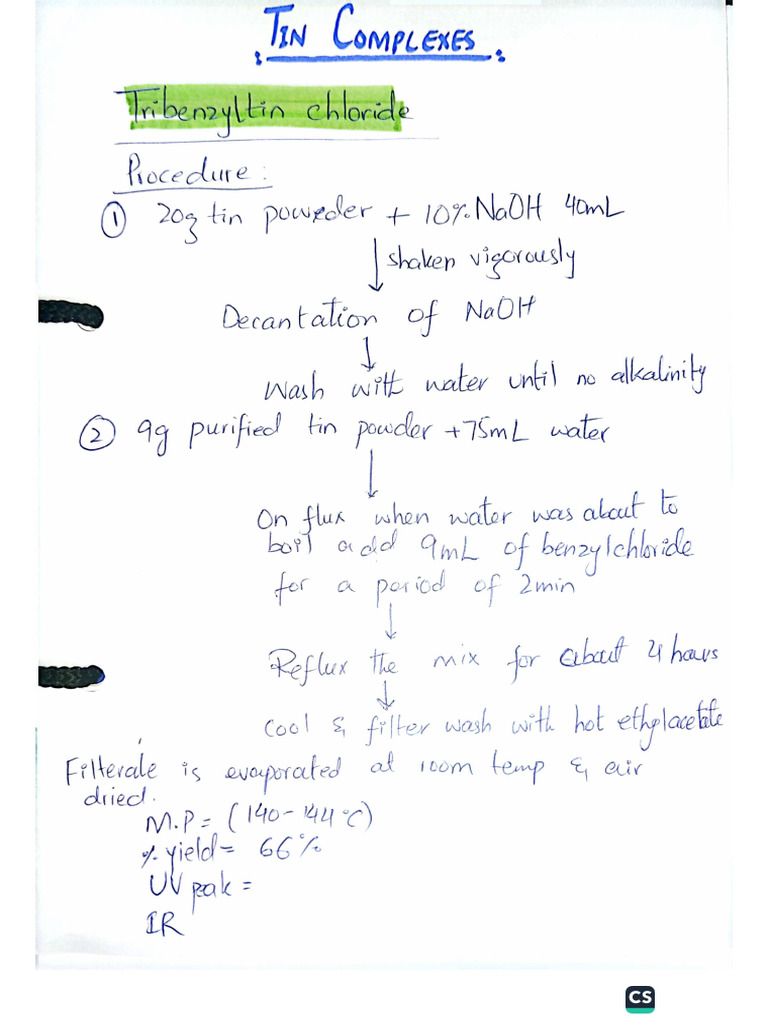 TIN COMPLEXES
Tribenzyltin chloride
Procedure:
① 20g tin poweder + 10% NaOH 40mL
shaken vigorously
Decantation of NaOH
Wash with water until no alkalinity
② 9g purified tin powder + 75mL water
On flux when water was about to
boil add 9mL of benzylchloride
for a period of 2min
Reflux the mix for about 4 hours
Cool & filter wash with hot ethylacetate
Filterate is evaporated at room temp & air
dried.
M.P = (140-144°C)
% yield = 66%
UV peak =
IR
CS